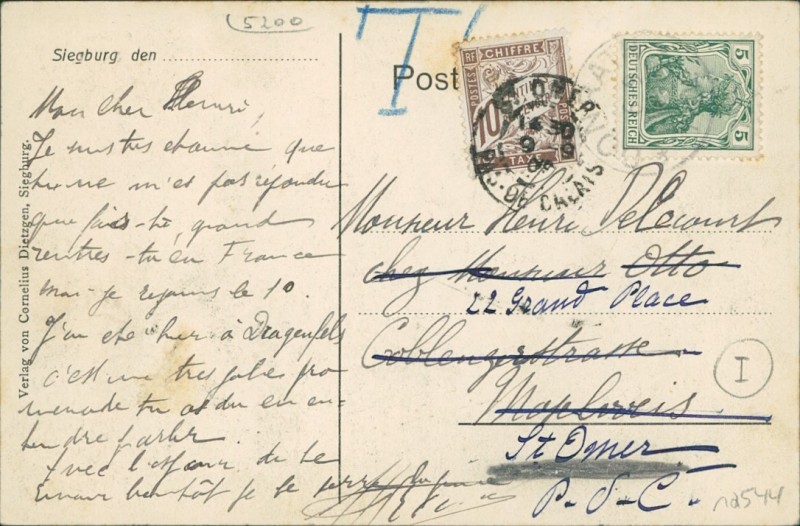 5200
T
Siegburg den
Postk
RF CHIFFRE
POSTES
10
TAXE
ST OMER
14 30
9 9
PAS-DE-CALAIS
5 5
DEUTSCHES REICH
Mon cher Henri,
Je suis très étonné que
tu ne m'es pas répondu
que fais-tu, quand
rentres-tu en France
moi je rejoins le 10.
J'ai été hier à Dragenfels
c'est une très jolie pro
menade tu as du en en-
tendre parler.
Avec l'espoir de te
revoir bientôt je te serre la main
Verlag von Cornelius Dietzgen, Siegburg.
Monsieur Henri Delcourt
chez Monsieur Otto
22 Grand Place
Coblengerstrasse
St Omer
P-d-C.
I
12544